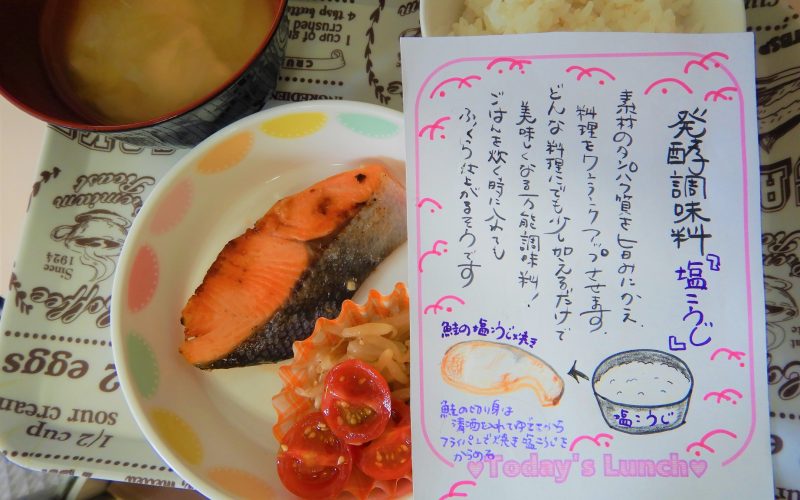 発酵調味料『塩こうじ』
素材のタンパク質を旨みにかえ、
料理をワンランクアップさせます。
どんな料理にでも少し加えるだけで
美味しくなる万能調味料!
ごはんを炊く時に入れても
ふっくら仕上がるそうです
鮭の塩こうじ焼き
塩こうじ
鮭の切り身は
清酒を入れてゆでてから
フライパンで焼き塩こうじを
からめる
Today's Lunch
Since
1924
Coffee
2 eggs
sour cream
1/2 cup
crushed